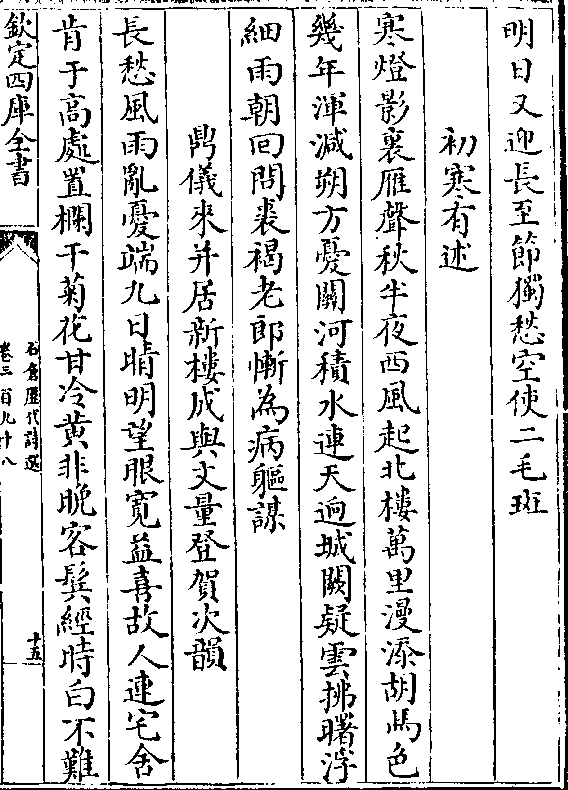 明日又迎長至節獨愁空使二毛斑
初寒有述
寒燈影裏雁聲秋半夜西風起北樓萬里漫添胡馬色
幾年渾減朔方憂關河積水連天逈城闕疑雲拂曙浮
細雨朝回問裘褐老郎慚為病軀謀
鬥儀來并居新樓成與文量登賀次韻
長愁風雨亂憂端九日晴明望眼寬益喜故人連宅舍
肯于高處置欄干菊花甘冷黄非晚客鬂經時白不難
欽定四庫全書
石倉歷代詩選
卷三百九十八
十五